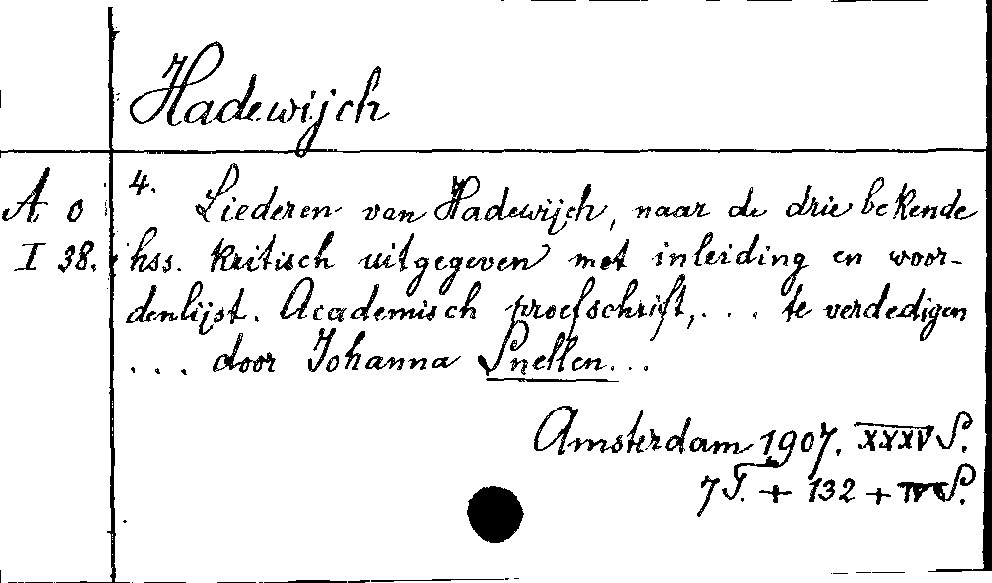 Hadewijch
A 0
I 38.
4. Liederen van Hadewijch, naar de drie bekende
hss. kritisch uitgegeven met inleiding en woor-
denlijst. Academisch proefschrift, ... te verdedigen
... door Johanna Snellen...
Amsterdam 1907. XXXV S.
7 T. + 132 + S.